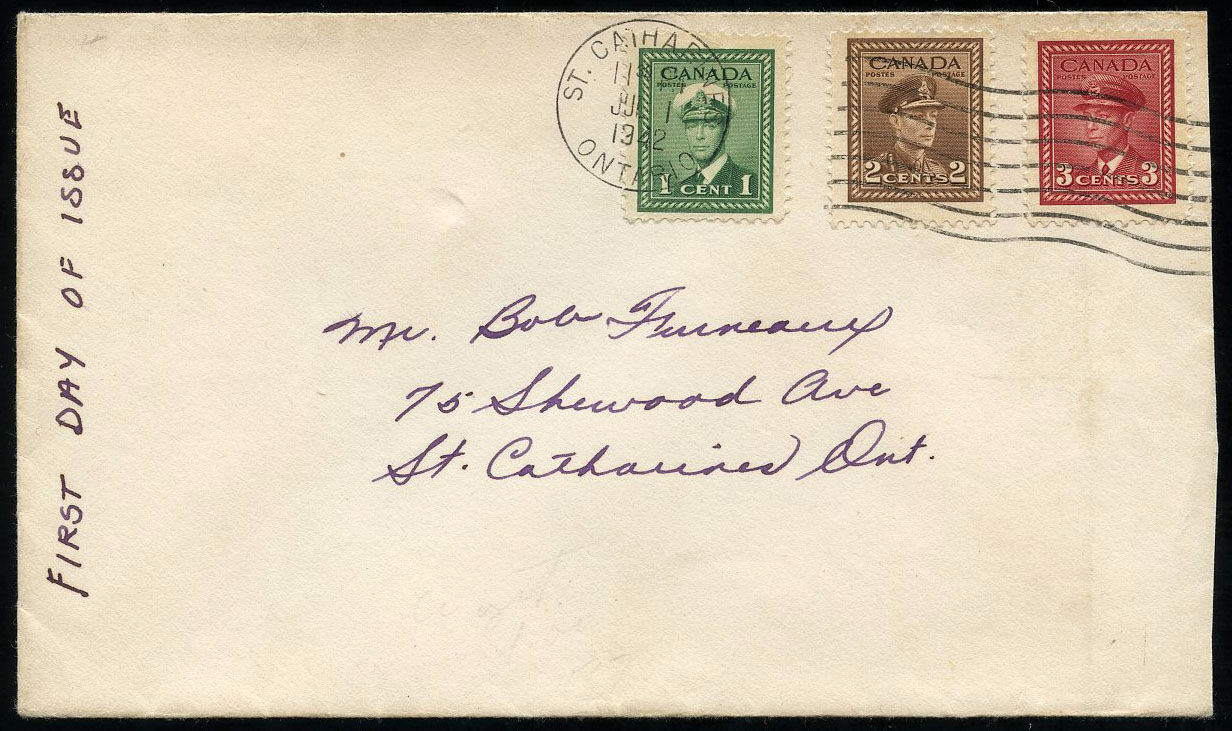 ST. CATHAR
ONTARIO
JUL 1
1942
CANADA
POSTES POSTAGE
1 CENT 1
CANADA
POSTES POSTAGE
2 CENTS 2
CANADA
POSTES POSTAGE
3 CENTS 3
FIRST DAY OF ISSUE
Mr. Bob Furneaux
75 Sherwood Ave
St. Catharines Ont.